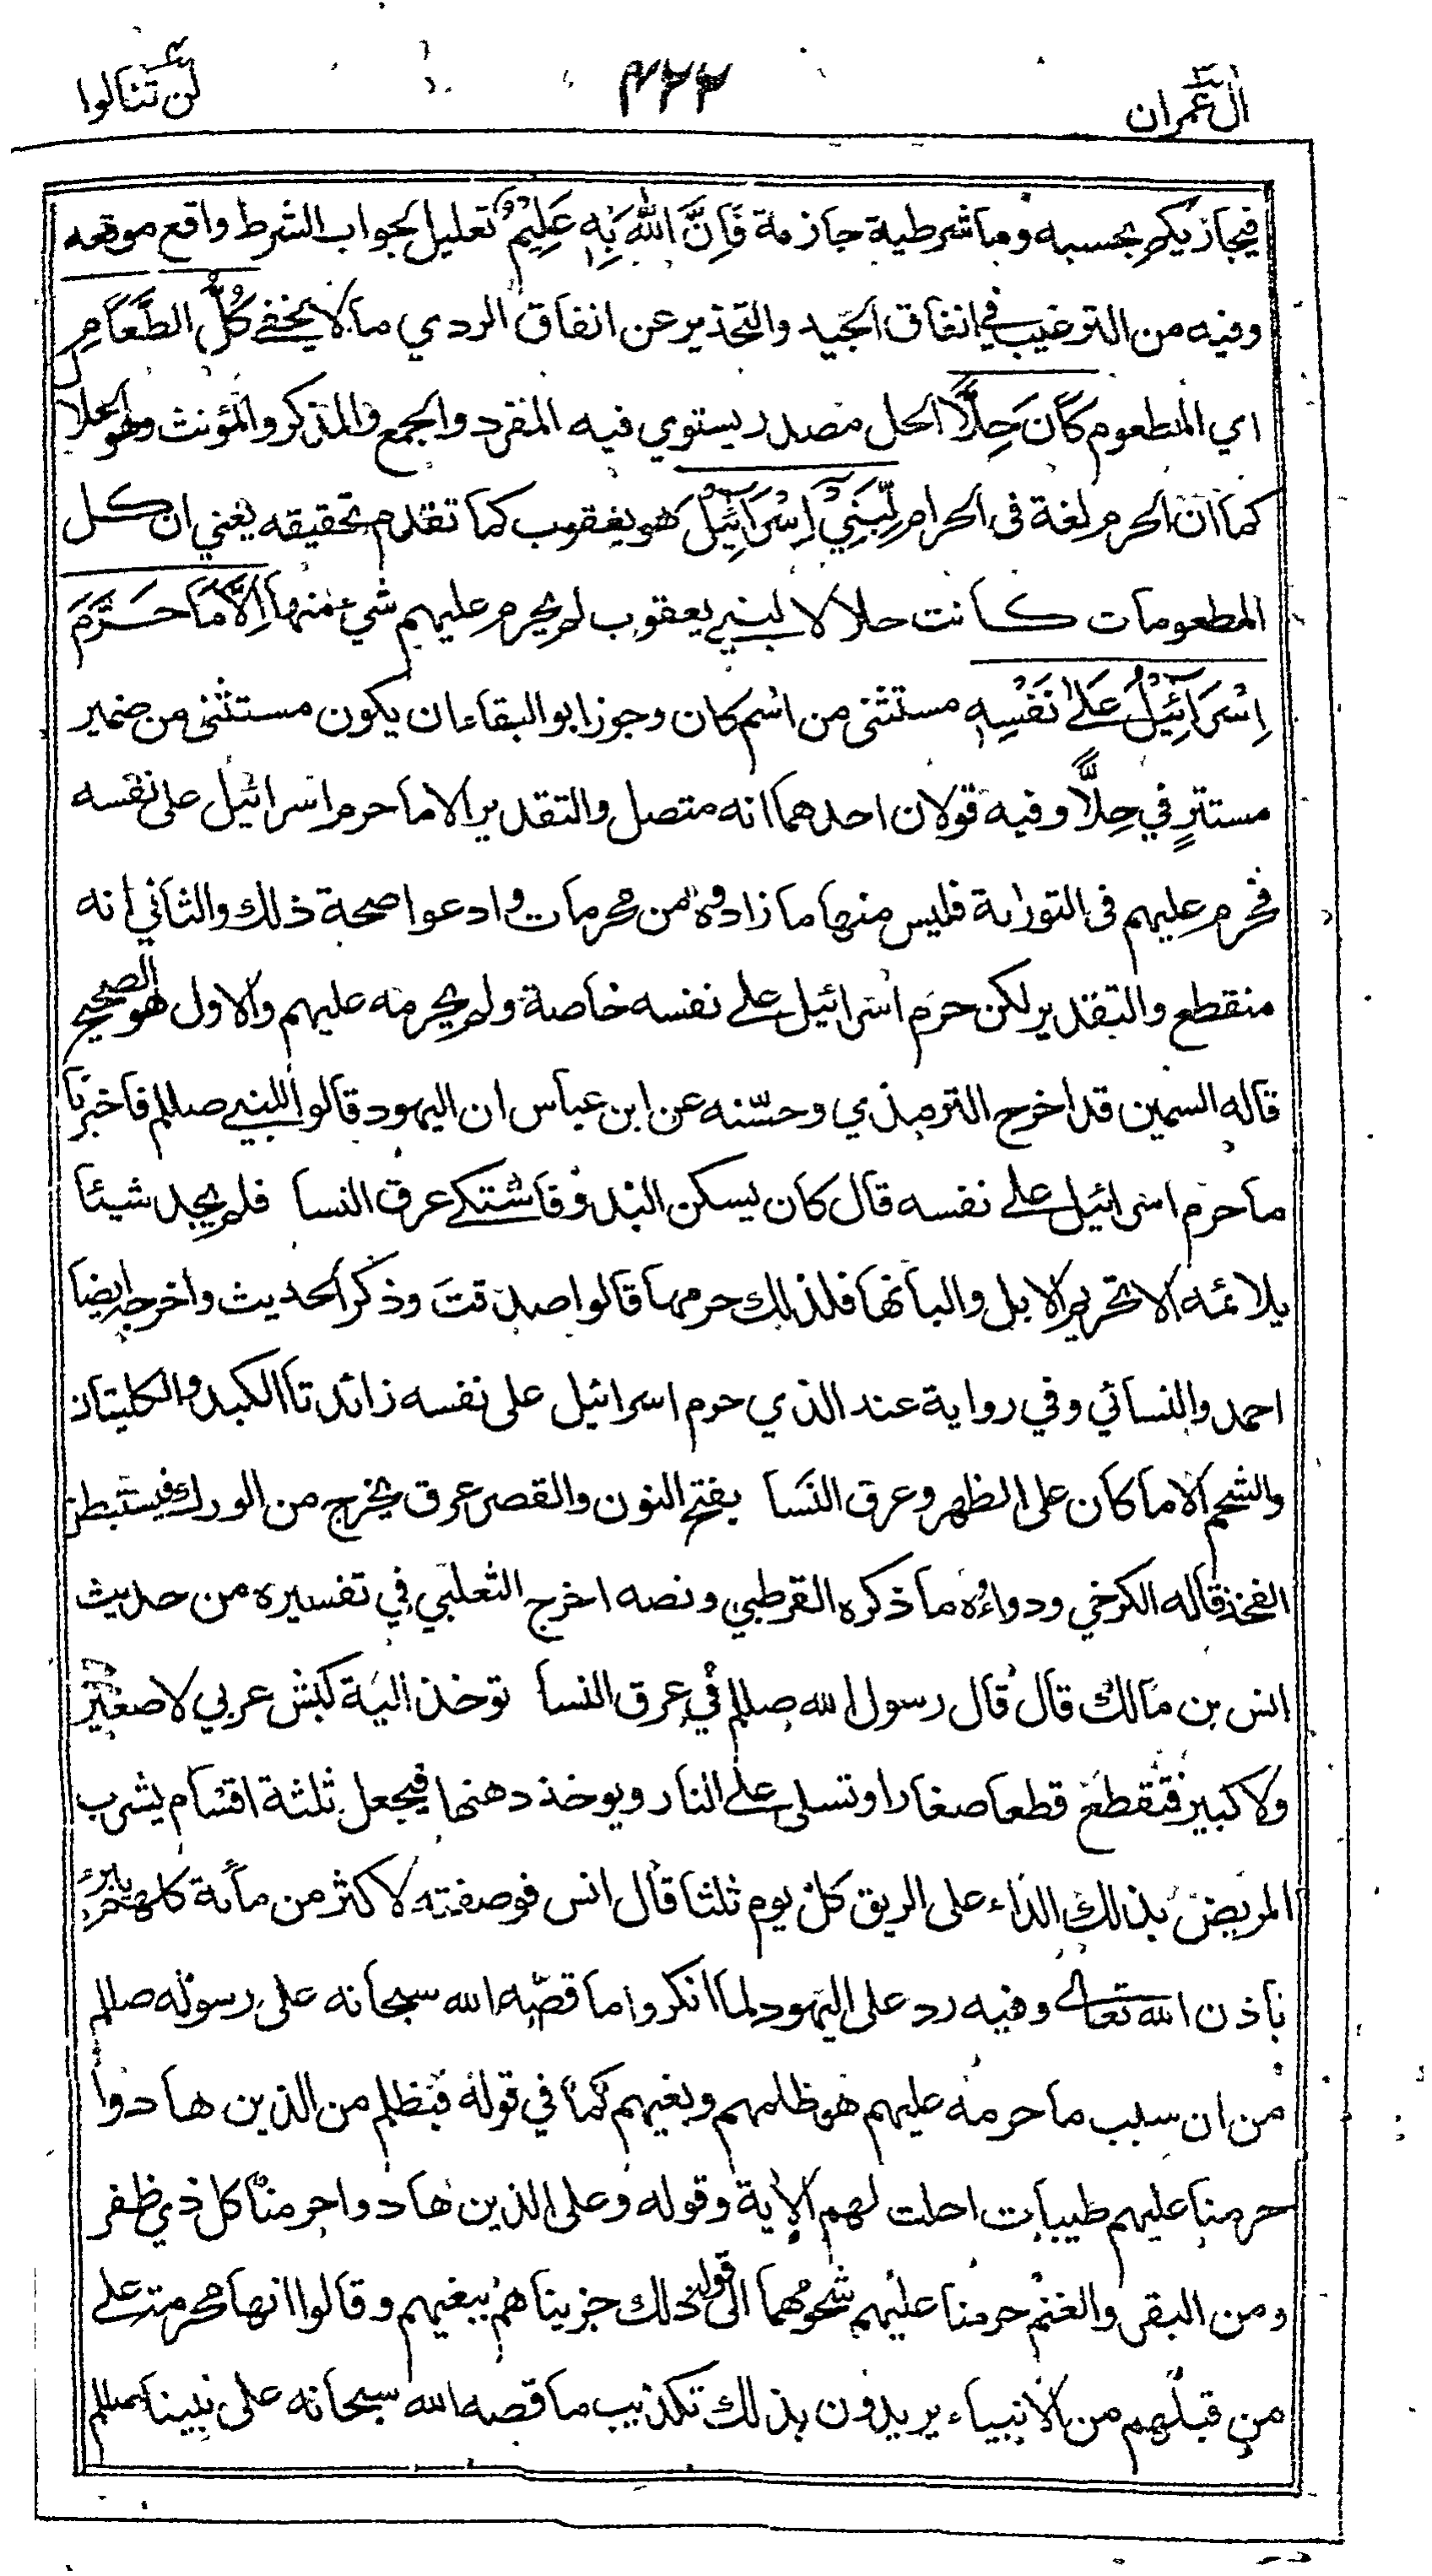 ال عمران ٤٢٢ لن تنالوا
فيجازيكم بحسبه وما شرطية جازمة فَاِنَّ اللّٰهَ بِهٖ عَلِيْمٌ تعليل لجواب الشرط واقع موقعه
وفيه من الترغيب في انفاق الجيد والتحذير عن انفاق الردي ما لا يخفى كُلُّ الطَّعَامِ
اي المطعوم كَانَ حِلًّا الحل مصدر يستوي فيه المفرد والجمع والمذكر والمؤنث وهو الحلال
كما ان الحرم لغة فى الحرام لِّبَنِيْ اِسْرَائِيْلَ هو يعقوب كما تقدم تحقيقه يعني ان كل
المطعومات كانت حلالا لبني يعقوب لم يحرم عليهم شيء منها اِلَّا مَا حَرَّمَ
اِسْرَائِيْلُ عَلٰى نَفْسِهٖ مستثنى من اسم كان وجوز ابو البقاء ان يكون مستثنى من ضمير
مستترٍ في حِلًّا وفيه قولان احدهما انه متصل والتقدير الا ما حرم اسرائيل على نفسه
فحرم عليهم فى التوراة فليس منها ما زادوه من محرمات وادعوا صحة ذلك والثاني انه
منقطع والتقدير لكن حرم اسرائيل على نفسه خاصة ولم يحرمه عليهم والاول هو الصحيح
قاله السمين قد اخرج الترمذي وحسّنه عن ابن عباس ان اليهود قالوا للنبي صللم فاخبرنا
ما حرم اسرائيل على نفسه قال كان يسكن البدو فاشتكى عرق النسا فلم يجد شيئا
يلائمه الا تحريم الابل والبانها فلذلك حرمها قالوا صدقت وذكر الحديث واخرجه ايضا
احمد والنسائي وفي رواية عند الذي حرم اسرائيل على نفسه زائدتا الكبد والكليتان
والشحم الا ما كان على الظهر وعرق النَسا بفتح النون والقصر عرق يخرج من الورك فيستبطن
الفخذ قاله الكرخي ودواءه ما ذكره القرطبي ونصه اخرج الثعلبي في تفسيره من حديث
انس بن مالك قال قال رسول الله صللم في عرق النسا توخذ الية كبش عربي لا صغير
ولا كبير فتقطع قطعا صغارا وتسلى على النار ويوخذ دهنها فيجعل ثلثة اقسام يشرب
المريض بذلك الداء على الريق كل يوم ثلثا قال انس فوصفته لاكثر من مأئة كلهم يبرء
باذن الله تعالى وفيه رد على اليهود لما انكروا ما قصّه الله سبحانه على رسوله صللم
من ان سبب ما حرمه عليهم هو ظلمهم وبغيهم كما في قوله فبظلم من الذين هادوا
حرمنا عليهم طيبات احلت لهم الأية وقوله وعلى الذين هادوا حرمنا كل ذي ظفر
ومن البقر والغنم حرمنا عليهم شحومهما الى قوله ذلك جزيناهم ببغيهم وقالوا انها محرمة على
من قبلهم من الانبياء يريدون بذلك تكذيب ما قصه الله سبحانه على نبينا صللم